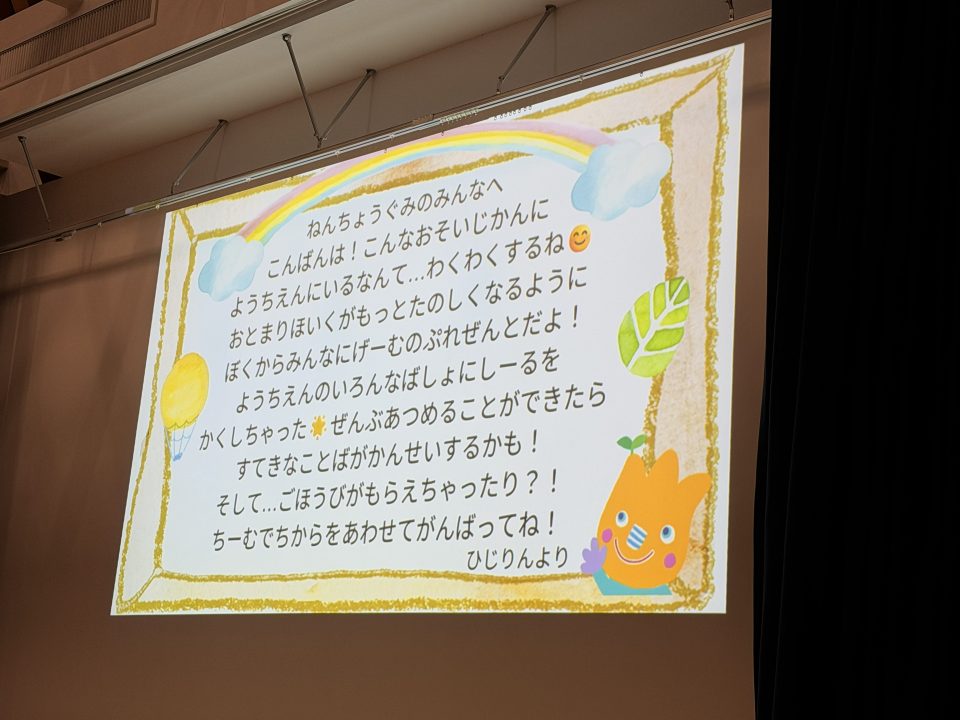 ねんちょうぐみのみんなへ
こんばんは！こんなおそいじかんに
ようちえんにいるなんて…わくわくするね😊
おとまりほいくがもっとたのしくなるように
ぼくからみんなにげーむのぷれぜんとだよ！
ようちえんのいろんなばしょにしーるを
かくしちゃった🌟ぜんぶあつめることができたら
すてきなことばがかんせいするかも！
そして…ごほうびがもらえちゃったり？！
ちーむでちからをあわせてがんばってね！
ひじりんより